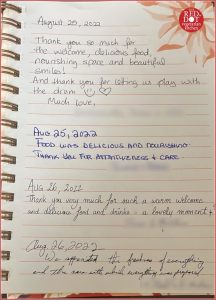 RED DOT
August 25, 2022
Thank you so much for
the welcome, delicious food,
nourishing space and beautiful
smiles!
And thank you for letting us play with
the drum
Much love,
Aug 25, 2022
FOOD WAS DELICIOUS AND NOURISHING
THANK YOU FOR ATTENTIVENESS & CARE
Aug 26, 2022
Thank you very much for such a warm welcome
and delicious food and drinks - a lovely moment
Aug. 26, 2022
We appreciated the freshness of everything
and the care with which everything was prepared